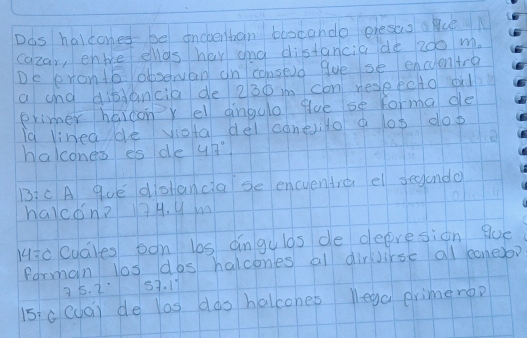 Dos halcones se encuentran buscando presas que
cazar, entre ellos hay una distancia de 200 m.
De pronto observan un conejo que se encuentra
a una distancia de 230 m con respecto al
primer halcon y el ángulo que se forma de
la linea de vista del conejito a los dos
halcones es de 47°.
13:¿A qué distancia se encuentra el segundo
halcón? 174.4 m
14:¿Cuáles son los ángulos de depresion que
forman los dos halcones al dirijirse al conejo?
75.2° 57.1°
15:¿Cuál de los dos halcones llega primero?